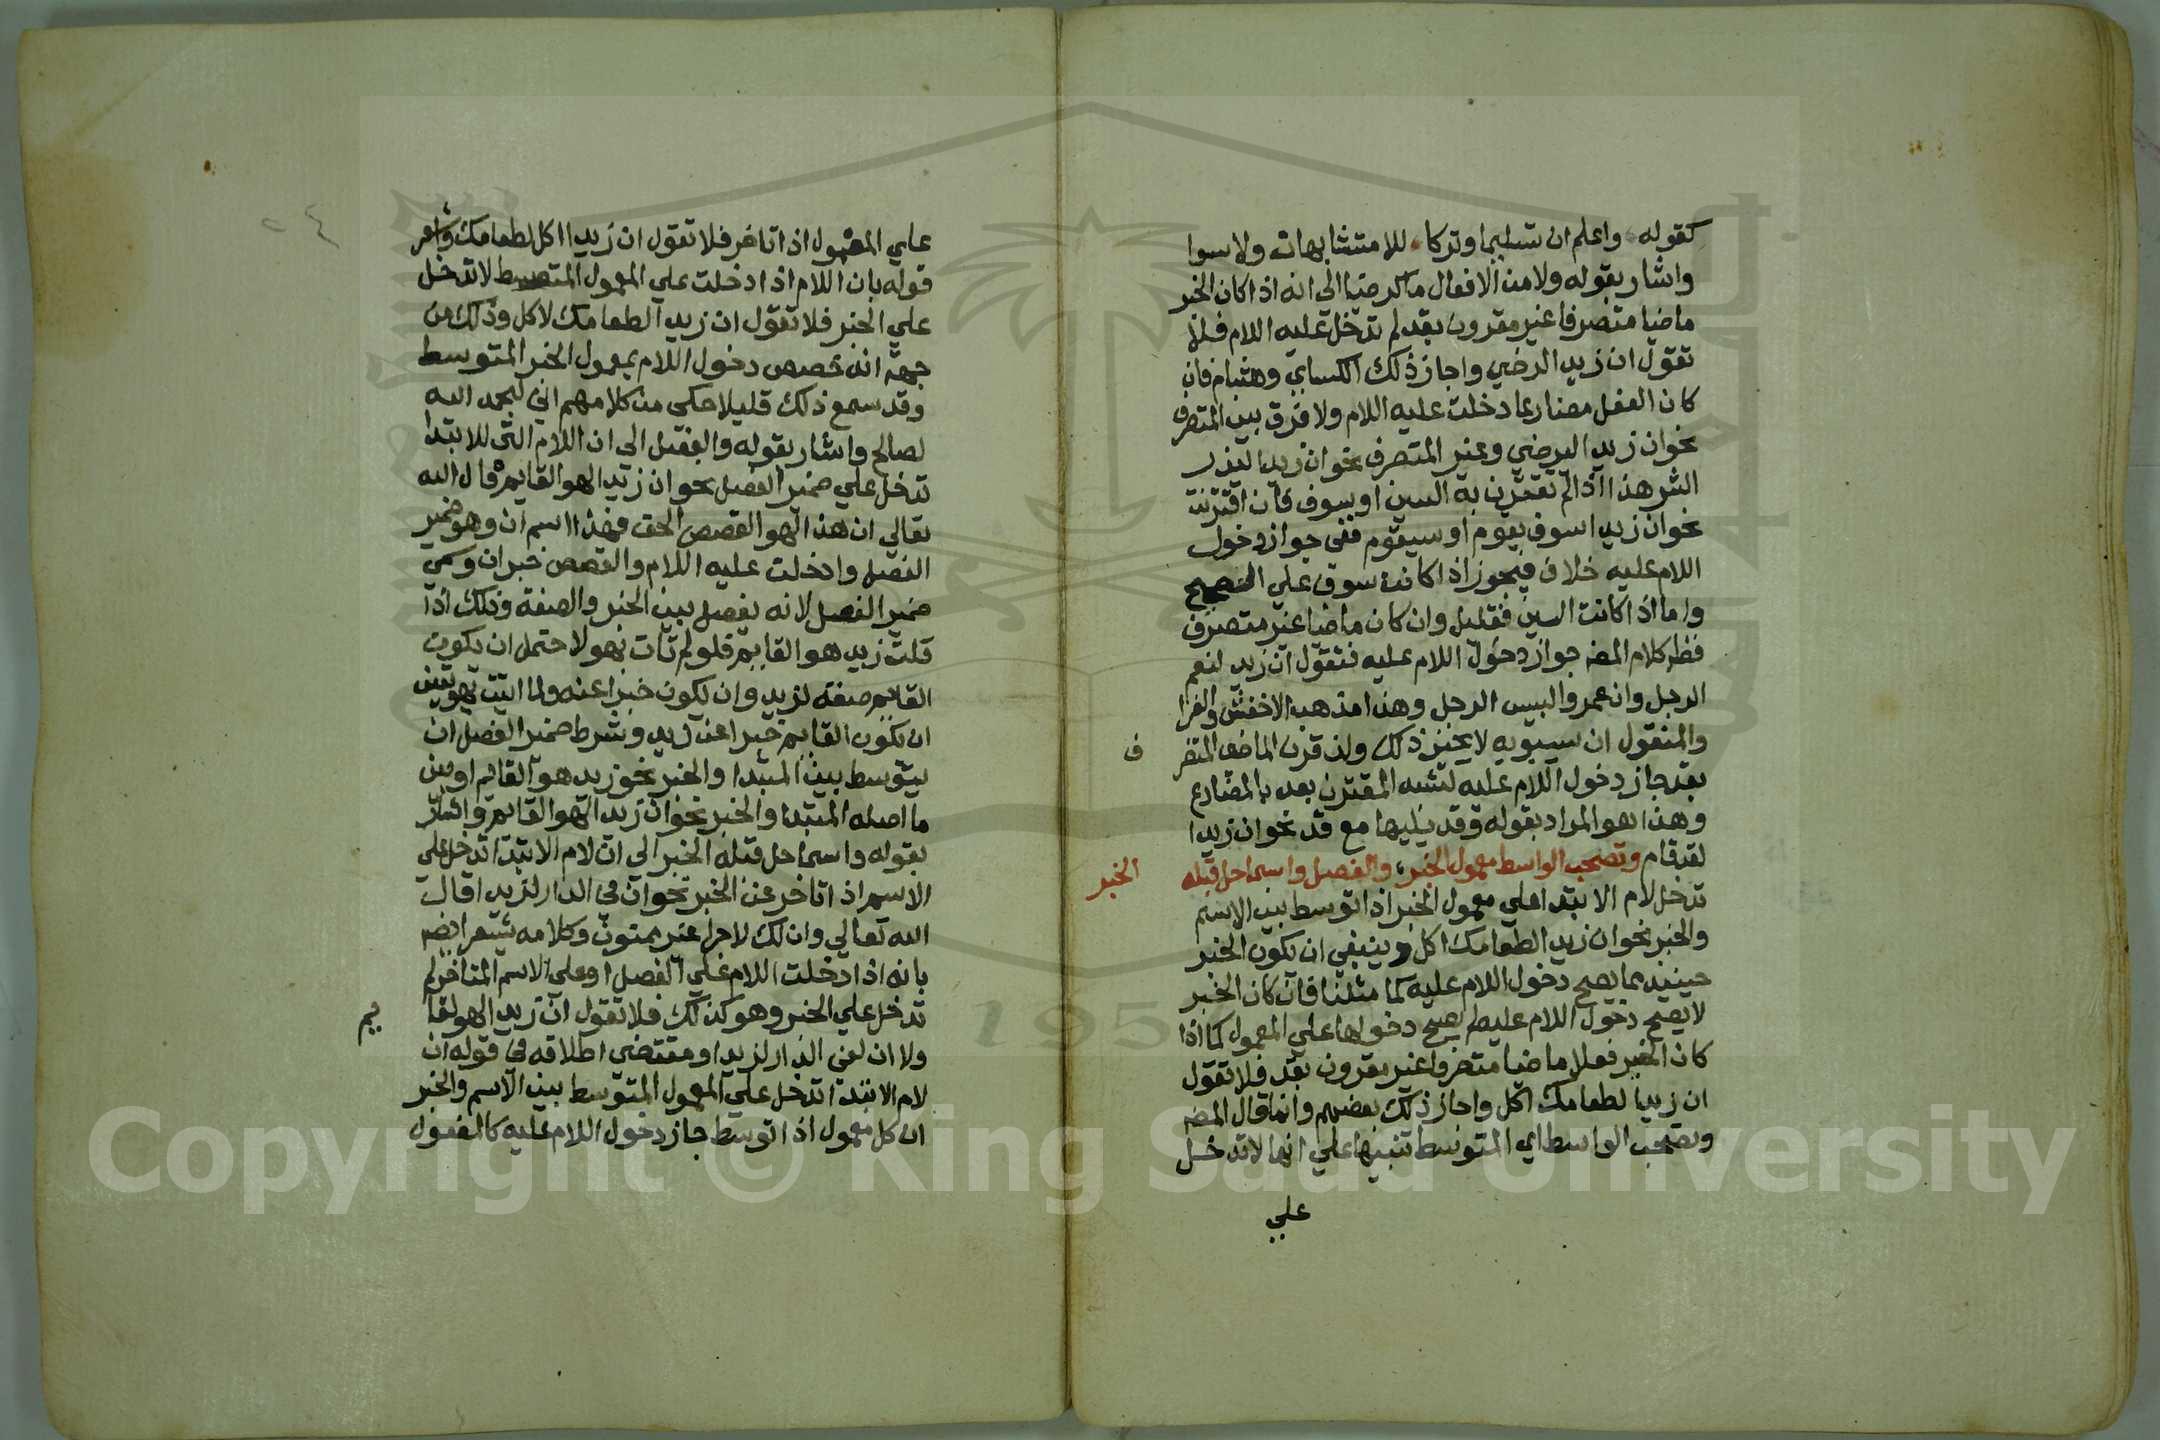 كقوله واعلم ان تسليما وتركا للا متشابهات ولا سوا
واشار بقوله ولا من الافعال ما كرضيا الى انه اذا كان الخبر
ماضيا متصرفا غير مقرون بقد لم تدخل عليه اللام فلا
تقول ان زيدا لرضي واجاز ذلك الكساي وهشام فان
كان الفعل مضارعا دخلت عليه اللام ولا فرق بين المتصرف
نحو ان زيدا ليرضي وغير المتصرف نحو ان زيدا ليذر
الشر هذا اذا لم تقترن به السين او سوف فان اقترنت
نحو ان زيدا سوف يقوم او سيقوم ففى جواز دخول
اللام عليه خلاف فيجوز اذا كانت سوف علي الصحيح
واما اذا كانت السين فقليل وان كان ماضيا غير متصرف
فظاهر كلام المصـ جواز دخول اللام عليه فتقول ان زيدا لنعم
الرجل وان عمروا لبيس الرجل وهذا مذهب الاخفش والفرا
والمنقول ان سيبويه لا يجيز ذلك وان قرن الماضى المتصر
ف
بقد جاز دخول اللام عليه لشبه المقترن بعد بالمضارع
وهذا هو المراد بقوله وقد يليها مع قد نحو ان زيدا
لقد قام وتصحب الواسط معمول الخبر، والفصل واسما حل قبله
الخبر
تدخل لام الابتدا علي معمول الخبر اذا توسط بين الاسم
والخبر نحو ان زيدا لطعامك اكل وينبغي ان يكون الخبر
حينيد مما يصح دخول اللام عليه كما مثلنا فان كان الخبر
لا يصح دخول اللام عليه لم يصح دخولها علي المعمول كما اذا
كان الخبر فعلا ماضيا متصرفا غير مقرون بقد فلا تقول
ان زيدا لطعامك اكل واجاز ذلك بعضهم وانما قال المصـ
وتصحب الواسط اي المتوسط تنبيها علي انها لا تدخل
علي
علي المعمول اذا تاخر فلا تقول ان زيدا اكل لطعامك واشعر
قوله بان اللام اذا دخلت علي المعمول المتوسط لا تدخل
علي الخبر فلا تقول ان زيدا لطعامك لاكل وذلك من
جهة انه خصص دخول اللام بمعمول الخبر المتوسط
وقد سمع ذلك قليلا حكى من كلامهم اني لبحمد الله
لصالح واشار بقوله والفصل الى ان اللام التي للابتدا
تدخل علي ضمير الفصل نحو ان زيدا لهو القايم قال الله
تعالي ان هذا لهو القصص الحق فهذا اسم ان وهو ضمير
الفصل وادخلت عليه اللام والقصص خبر ان وسمي
ضمير الفصل لانه يفصل بين الخبر والصفة وذلك اذا
قلت زيد هو القايم فلو لم تات بهو لاحتمل ان يكون
القايم صفة لزيد وان يكون خبرا عنه ولما اتيت بهو تعين
ان يكون القايم خبرا عن زيد وشرط ضمير الفصل ان
يتوسط بين المبتدا والخبر نحو زيد هو القايم او بين
ما اصله المبتدا والخبر نحو ان زيدا لهو القايم واشار
بقوله واسما حل قبله الخبر الي ان لام الابتدا تدخل علي
الاسم اذا تاخر عن الخبر نحو ان في الدار لزيدا قال
الله تعالي وان لك لاجرا غير ممنون وكلامه يشعر ايضـ
بانه اذا دخلت اللام علي الفصل او علي الاسم المتاخر لم
تدخل علي الخبر وهو كذلك فلا تقول ان زيدا لهو لقا
يم
ولا ان لفى الدار لزيدا ومقتضي اطلاقه في قوله ان
لام الابتدا تدخل علي المعمول المتوسط بين الاسم والخبر
ان كل معمول اذا توسط جاز دخول اللام عليه كالمفعول
Copyright © King Saud University
195